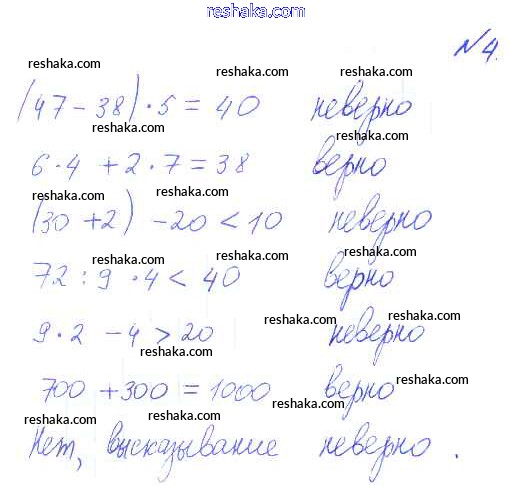 reshaka.com
№4.
reshaka.com reshaka.com
(47 - 38) · 5 = 40 неверно
reshaka.com reshaka.com
6 · 4 + 2 · 7 = 38 верно
reshaka.com reshaka.com
(30 + 2) - 20 < 10 неверно
reshaka.com reshaka.com
72 : 9 · 4 < 40 верно
reshaka.com reshaka.com
9 · 2 - 4 > 20 неверно
reshaka.com reshaka.com
700 + 300 = 1000 верно
reshaka.com reshaka.com
Нет, высказывание неверно.
reshaka.com reshaka.com